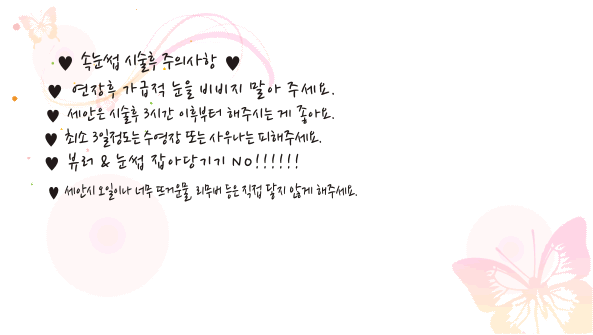 ♥ 속눈썹 시술후 주의사항 ♥
♥ 연장후 가급적 눈을 비비지 말아 주세요.
♥ 세안은 시술후 3시간 이후부터 해주시는 게 좋아요.
♥ 최소 3일정도는 수영장 또는 사우나는 피해주세요.
♥ 뷰러 & 눈썹 잡아당기기 NO!!!!!!
♥ 세안시 오일이나 너무 뜨거운물, 리무버 등은 직접 닿지 않게 해주세요.